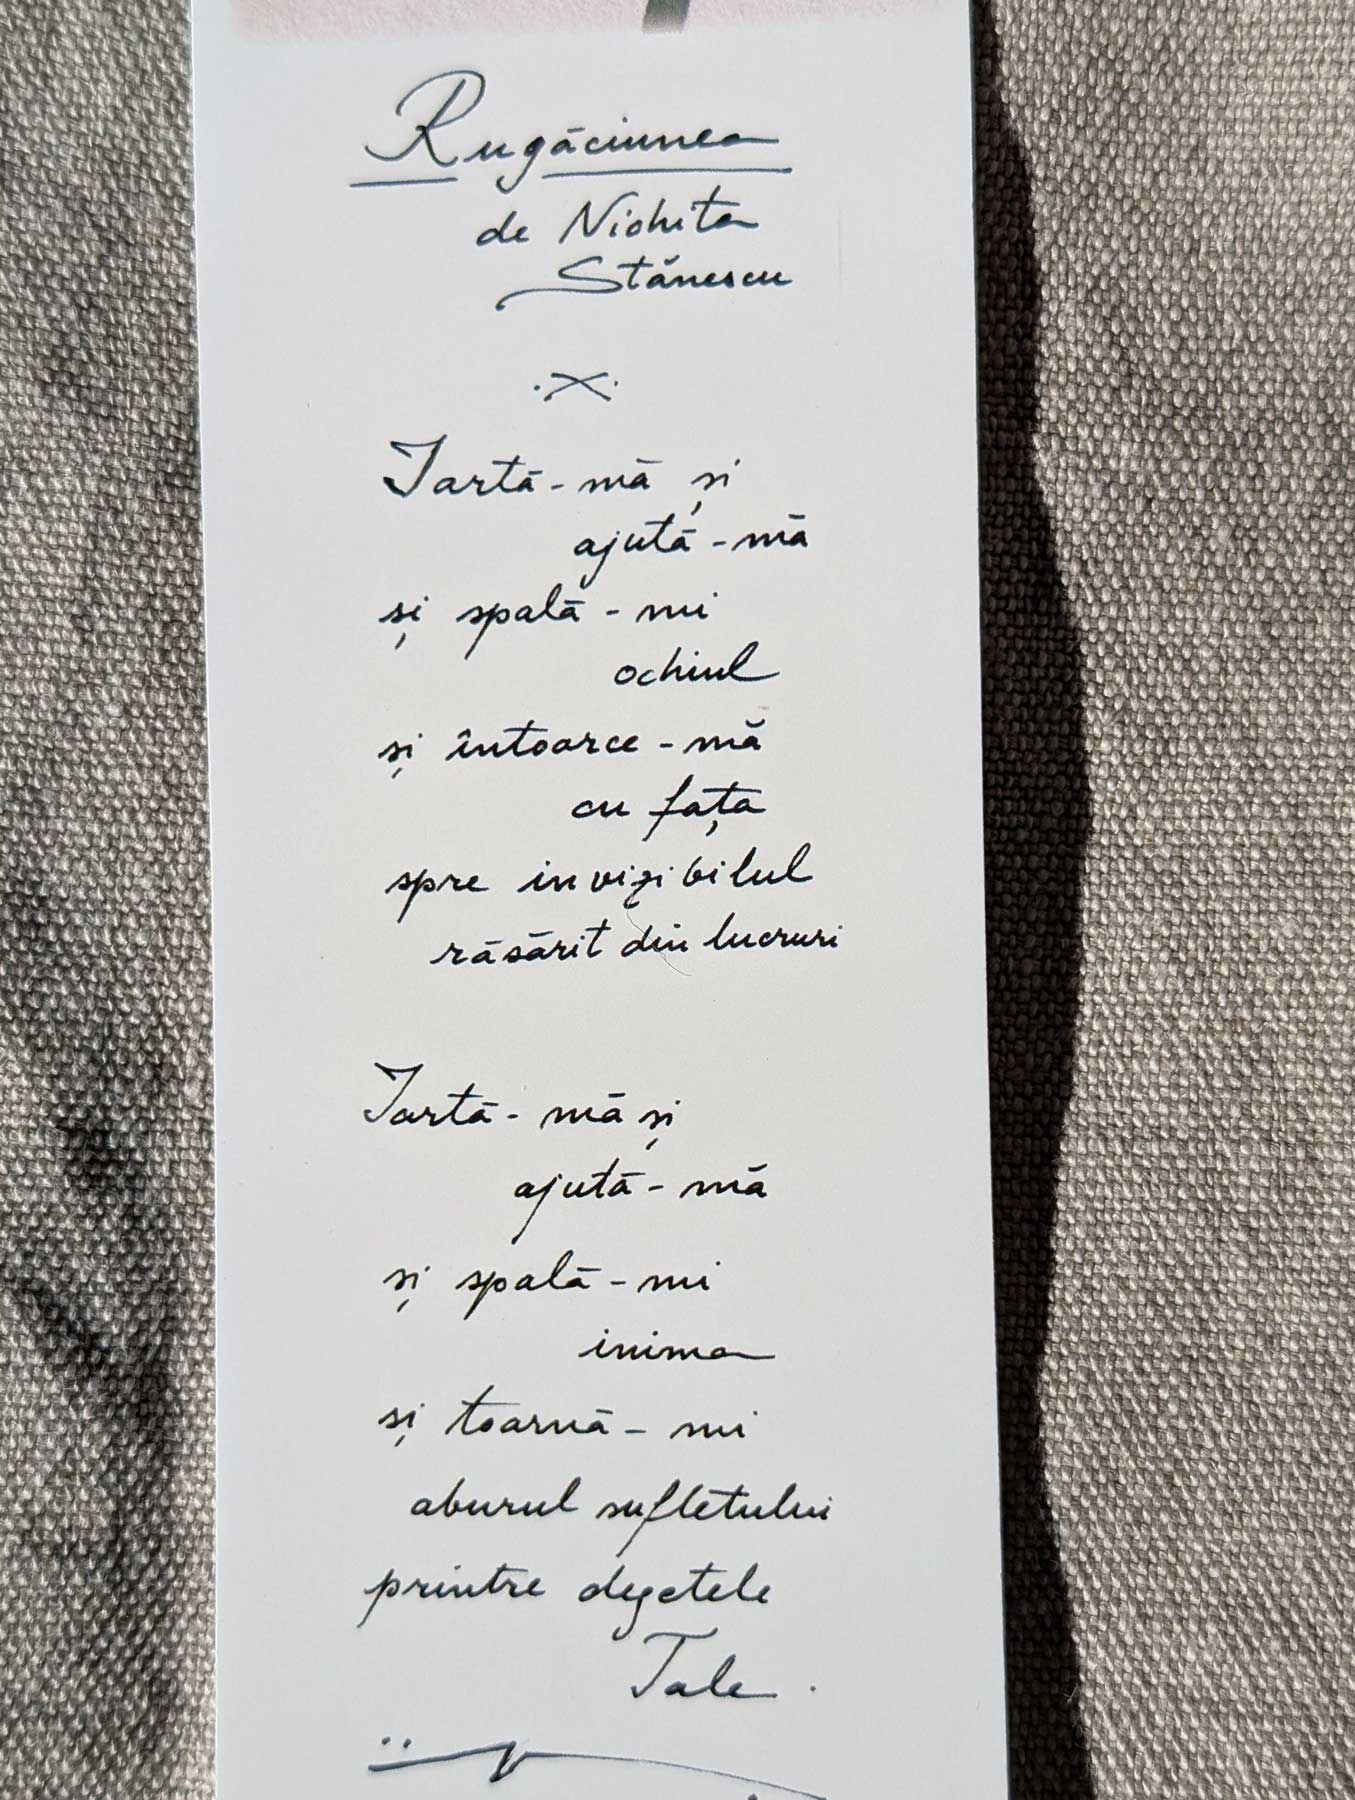 Rugăciunea
de Nichita
Stănescu
Iartă-mă și
ajută-mă
și spală-mi
ochiul
și întoarce-mă
cu fața
spre invizibilul
răsărit din lucruri
Iartă-mă și
ajută-mă
și spală-mi
inima
și toarnă-mi
aburul sufletului
printre degetele
Tale.